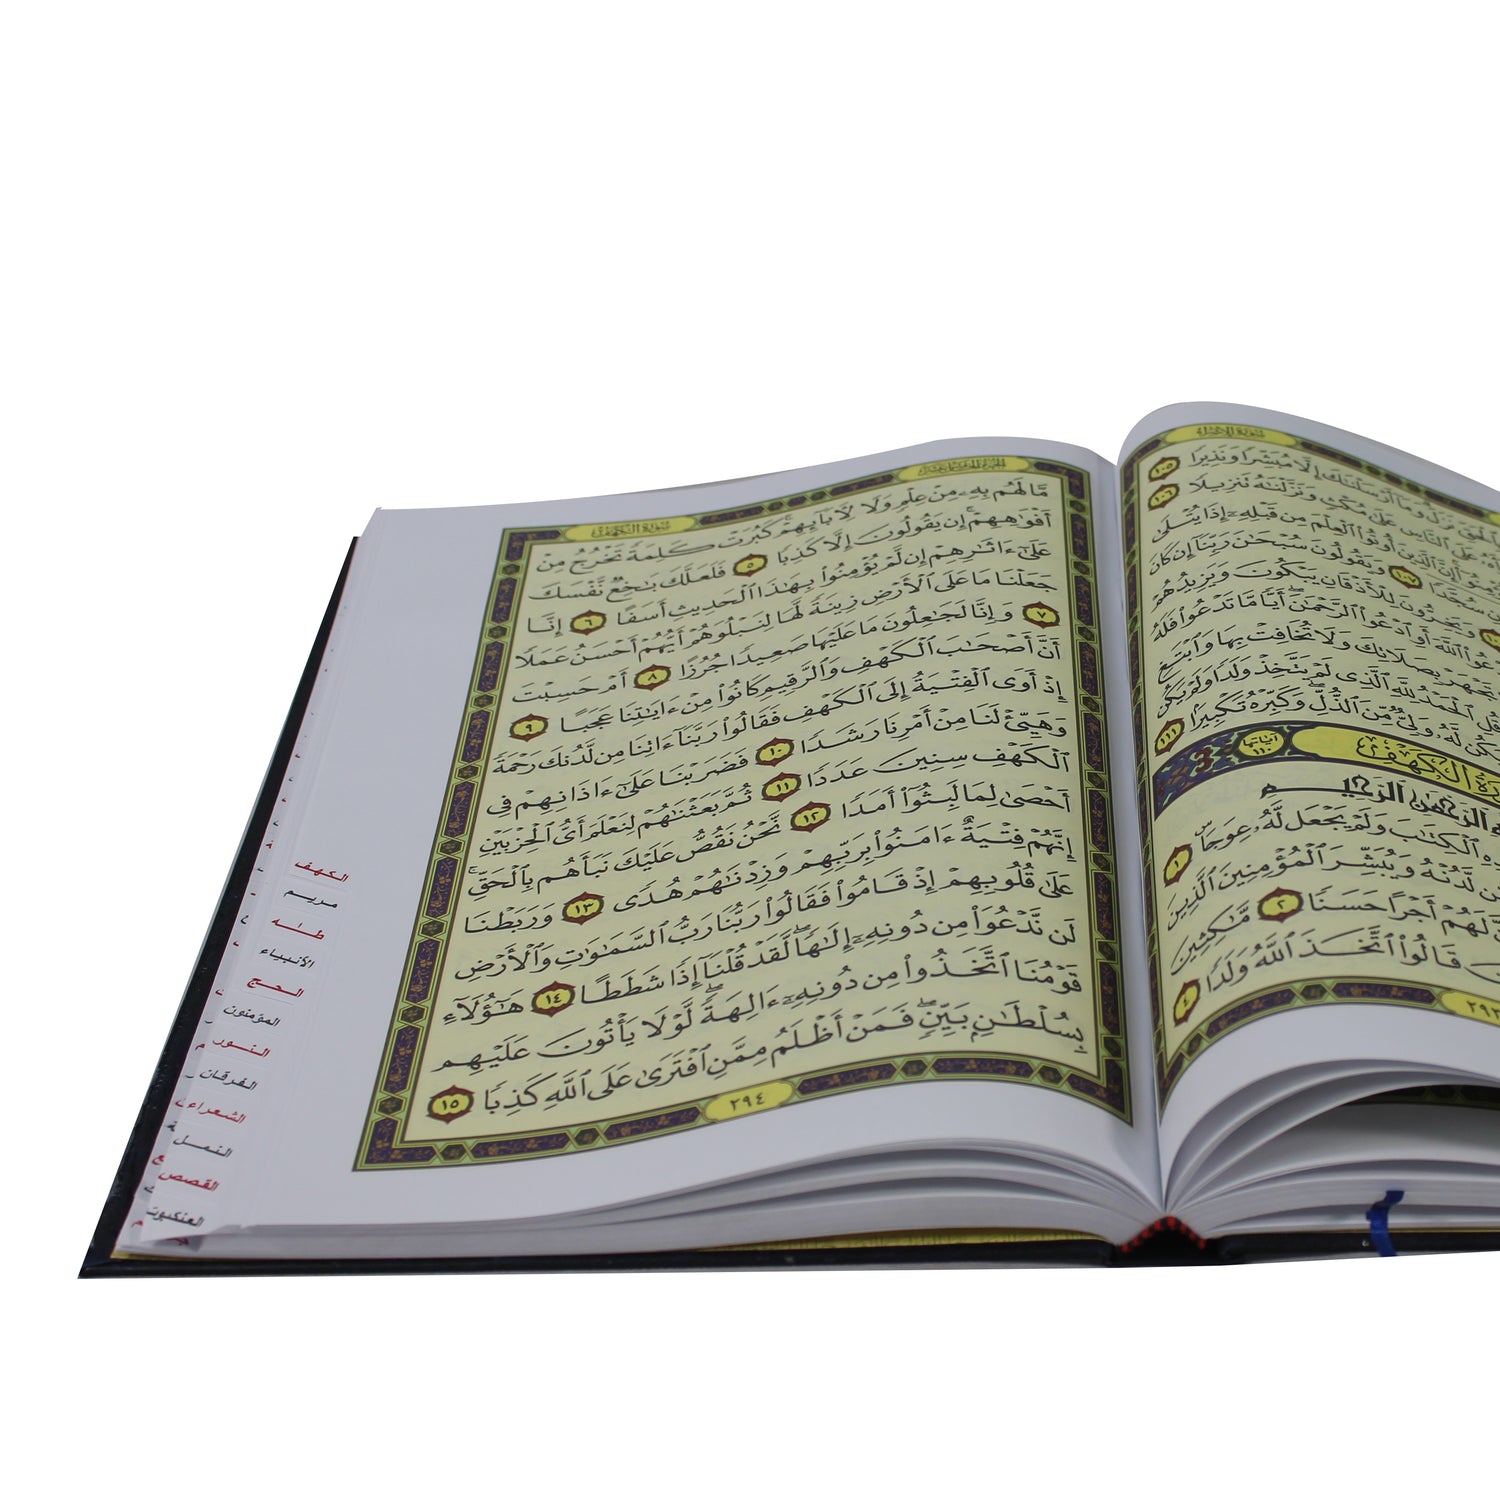 سُورَةُ الإِسْرَاءِ
نَزَلَ وَمَآ أَرْسَلْنَٰكَ إِلَّا مُبَشِّرًا وَنَذِيرًا ١٠٥
عَلَى ٱلنَّاسِ عَلَىٰ مُكْثٍ وَنَزَّلْنَٰهُ تَنزِيلًا ١٠٦
إِنَّ ٱلَّذِينَ أُوتُوا۟ ٱلْعِلْمَ مِن قَبْلِهِۦٓ إِذَا يُتْلَىٰ
سُجَّدًا ١٠٧ وَيَقُولُونَ سُبْحَٰنَ رَبِّنَآ إِن كَانَ
وَيَخِرُّونَ لِلْأَذْقَانِ يَبْكُونَ وَيَزِيدُهُمْ
ٱللَّهَ أَوِ ٱدْعُوا۟ ٱلرَّحْمَٰنَ أَيًّا مَّا تَدْعُوا۟ فَلَهُ
تَجْهَرْ بِصَلَاتِكَ وَلَا تُخَافِتْ بِهَا وَٱبْتَغِ
ٱلْحَمْدُ لِلَّهِ ٱلَّذِى لَمْ يَتَّخِذْ وَلَدًا وَلَمْ يَكُن
لَّهُۥ وَلِىٌّ مِّنَ ٱلذُّلِّ وَكَبِّرْهُ تَكْبِيرًۢا ١١١
الكَهْفِ آيَاتُهَا ١١٠
ٱلرَّحْمَٰنِ ٱلرَّحِيمِ
ٱلْكِتَٰبَ وَلَمْ يَجْعَل لَّهُۥ عِوَجَاۜ ١
لَّدُنْهُ وَيُبَشِّرَ ٱلْمُؤْمِنِينَ ٱلَّذِينَ
لَهُمْ أَجْرًا حَسَنًا ٢ مَّٰكِثِينَ
قَالُوا۟ ٱتَّخَذَ ٱللَّهُ وَلَدًا ٤
٢٩٣
الجُزْءُ الخَامِسَ عَشَرَ سُورَةُ الكَهْفِ
مَّا لَهُم بِهِۦ مِنْ عِلْمٍ وَلَا لِـَٔابَآئِهِمْ ۚ كَبُرَتْ كَلِمَةً تَخْرُجُ مِنْ
أَفْوَٰهِهِمْ ۚ إِن يَقُولُونَ إِلَّا كَذِبًا ٥ فَلَعَلَّكَ بَٰخِعٌ نَّفْسَكَ
عَلَىٰٓ ءَاثَٰرِهِمْ إِن لَّمْ يُؤْمِنُوا۟ بِهَٰذَا ٱلْحَدِيثِ أَسَفًا ٦ إِنَّا
جَعَلْنَا مَا عَلَى ٱلْأَرْضِ زِينَةً لَّهَا لِنَبْلُوَهُمْ أَيُّهُمْ أَحْسَنُ عَمَلًا
٧ وَإِنَّا لَجَٰعِلُونَ مَا عَلَيْهَا صَعِيدًا جُرُزًا ٨ أَمْ حَسِبْتَ
أَنَّ أَصْحَٰبَ ٱلْكَهْفِ وَٱلرَّقِيمِ كَانُوا۟ مِنْ ءَايَٰتِنَا عَجَبًا ٩
إِذْ أَوَى ٱلْفِتْيَةُ إِلَى ٱلْكَهْفِ فَقَالُوا۟ رَبَّنَآ ءَاتِنَا مِن لَّدُنكَ رَحْمَةً
وَهَيِّئْ لَنَا مِنْ أَمْرِنَا رَشَدًا ١٠ فَضَرَبْنَا عَلَىٰٓ ءَاذَانِهِمْ فِى
ٱلْكَهْفِ سِنِينَ عَدَدًا ١١ ثُمَّ بَعَثْنَٰهُمْ لِنَعْلَمَ أَىُّ ٱلْحِزْبَيْنِ
أَحْصَىٰ لِمَا لَبِثُوٓا۟ أَمَدًا ١٢ نَّحْنُ نَقُصُّ عَلَيْكَ نَبَأَهُم بِٱلْحَقِّ ۚ
إِنَّهُمْ فِتْيَةٌ ءَامَنُوا۟ بِرَبِّهِمْ وَزِدْنَٰهُمْ هُدًى ١٣ وَرَبَطْنَا
عَلَىٰ قُلُوبِهِمْ إِذْ قَامُوا۟ فَقَالُوا۟ رَبُّنَا رَبُّ ٱلسَّمَٰوَٰتِ وَٱلْأَرْضِ
لَن نَّدْعُوَا۟ مِن دُونِهِۦٓ إِلَٰهًا ۖ لَّقَدْ قُلْنَآ إِذًا شَطَطًا ١٤ هَٰٓؤُلَآءِ
قَوْمُنَا ٱتَّخَذُوا۟ مِن دُونِهِۦٓ ءَالِهَةً ۖ لَّوْلَا يَأْتُونَ عَلَيْهِم
بِسُلْطَٰنٍۭ بَيِّنٍ ۖ فَمَنْ أَظْلَمُ مِمَّنِ ٱفْتَرَىٰ عَلَى ٱللَّهِ كَذِبًا ١٥
٢٩٤
الكهف
مريم
طه
الأنبياء
الحج
المؤمنون
النور
الفرقان
الشعراء
النمل
القصص
العنكبوت